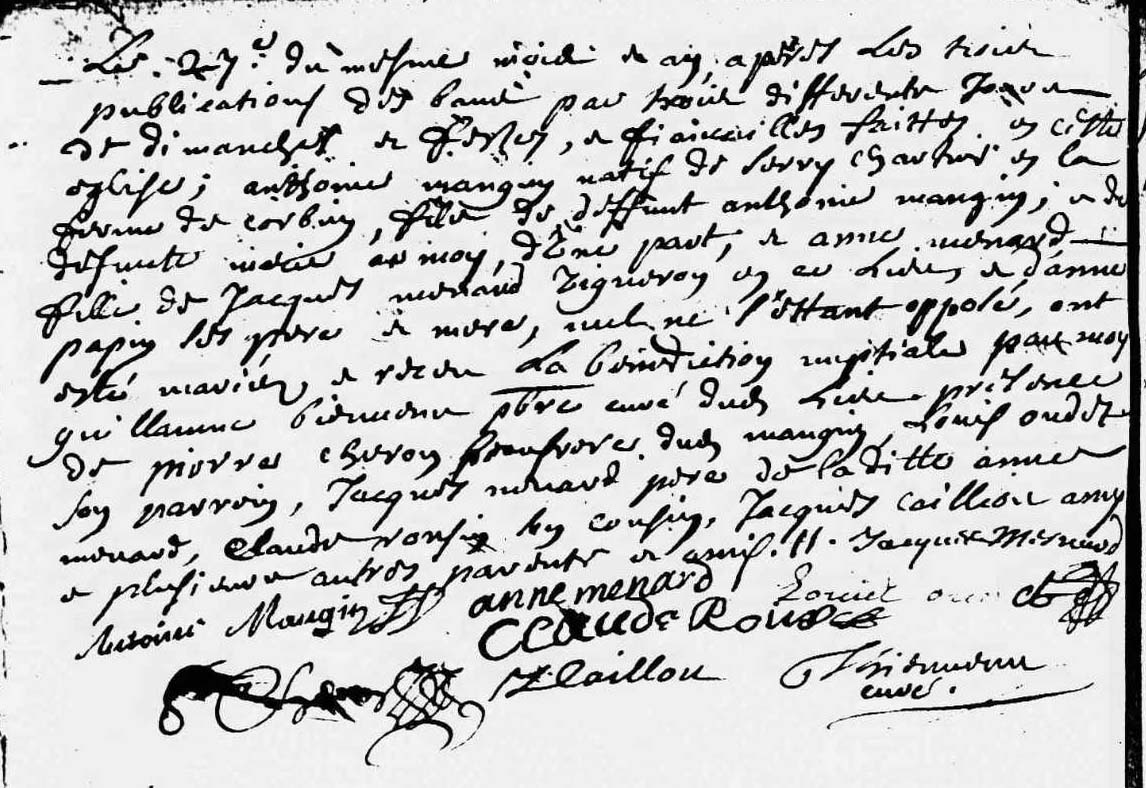 Le 27e du mesme mois et an, apres les trois
publications des bans par trois differents jours
de dimanches et festes, et fiancailles faittes en cette
eglise; anthoine mangin natif de serry chartier en la
ferme de corbin, fils de deffunt anthoine mangin; et de
defuncte marie moy, d'une part, et anne menard
fille de Jacques menard vigneron en ce lieu et d'anne
papin ses pere et mere, nul ne s'estant opposé, ont
esté mariez et receu la benediction nuptiale par moy
guillaume bienvenu pbre curé dud lieu presence
de pierre cheron beaufrere dud mangin, Louis oudet
son parrein, Jacques menard pere de laditte anne
menard, Claude son cousin, Jacques caillou amy
et plusieurs autres parents et amis. Jacques Menard
Antoine Mangin anne menard Louis
CLaude
Caillou Bienvenu
curé.